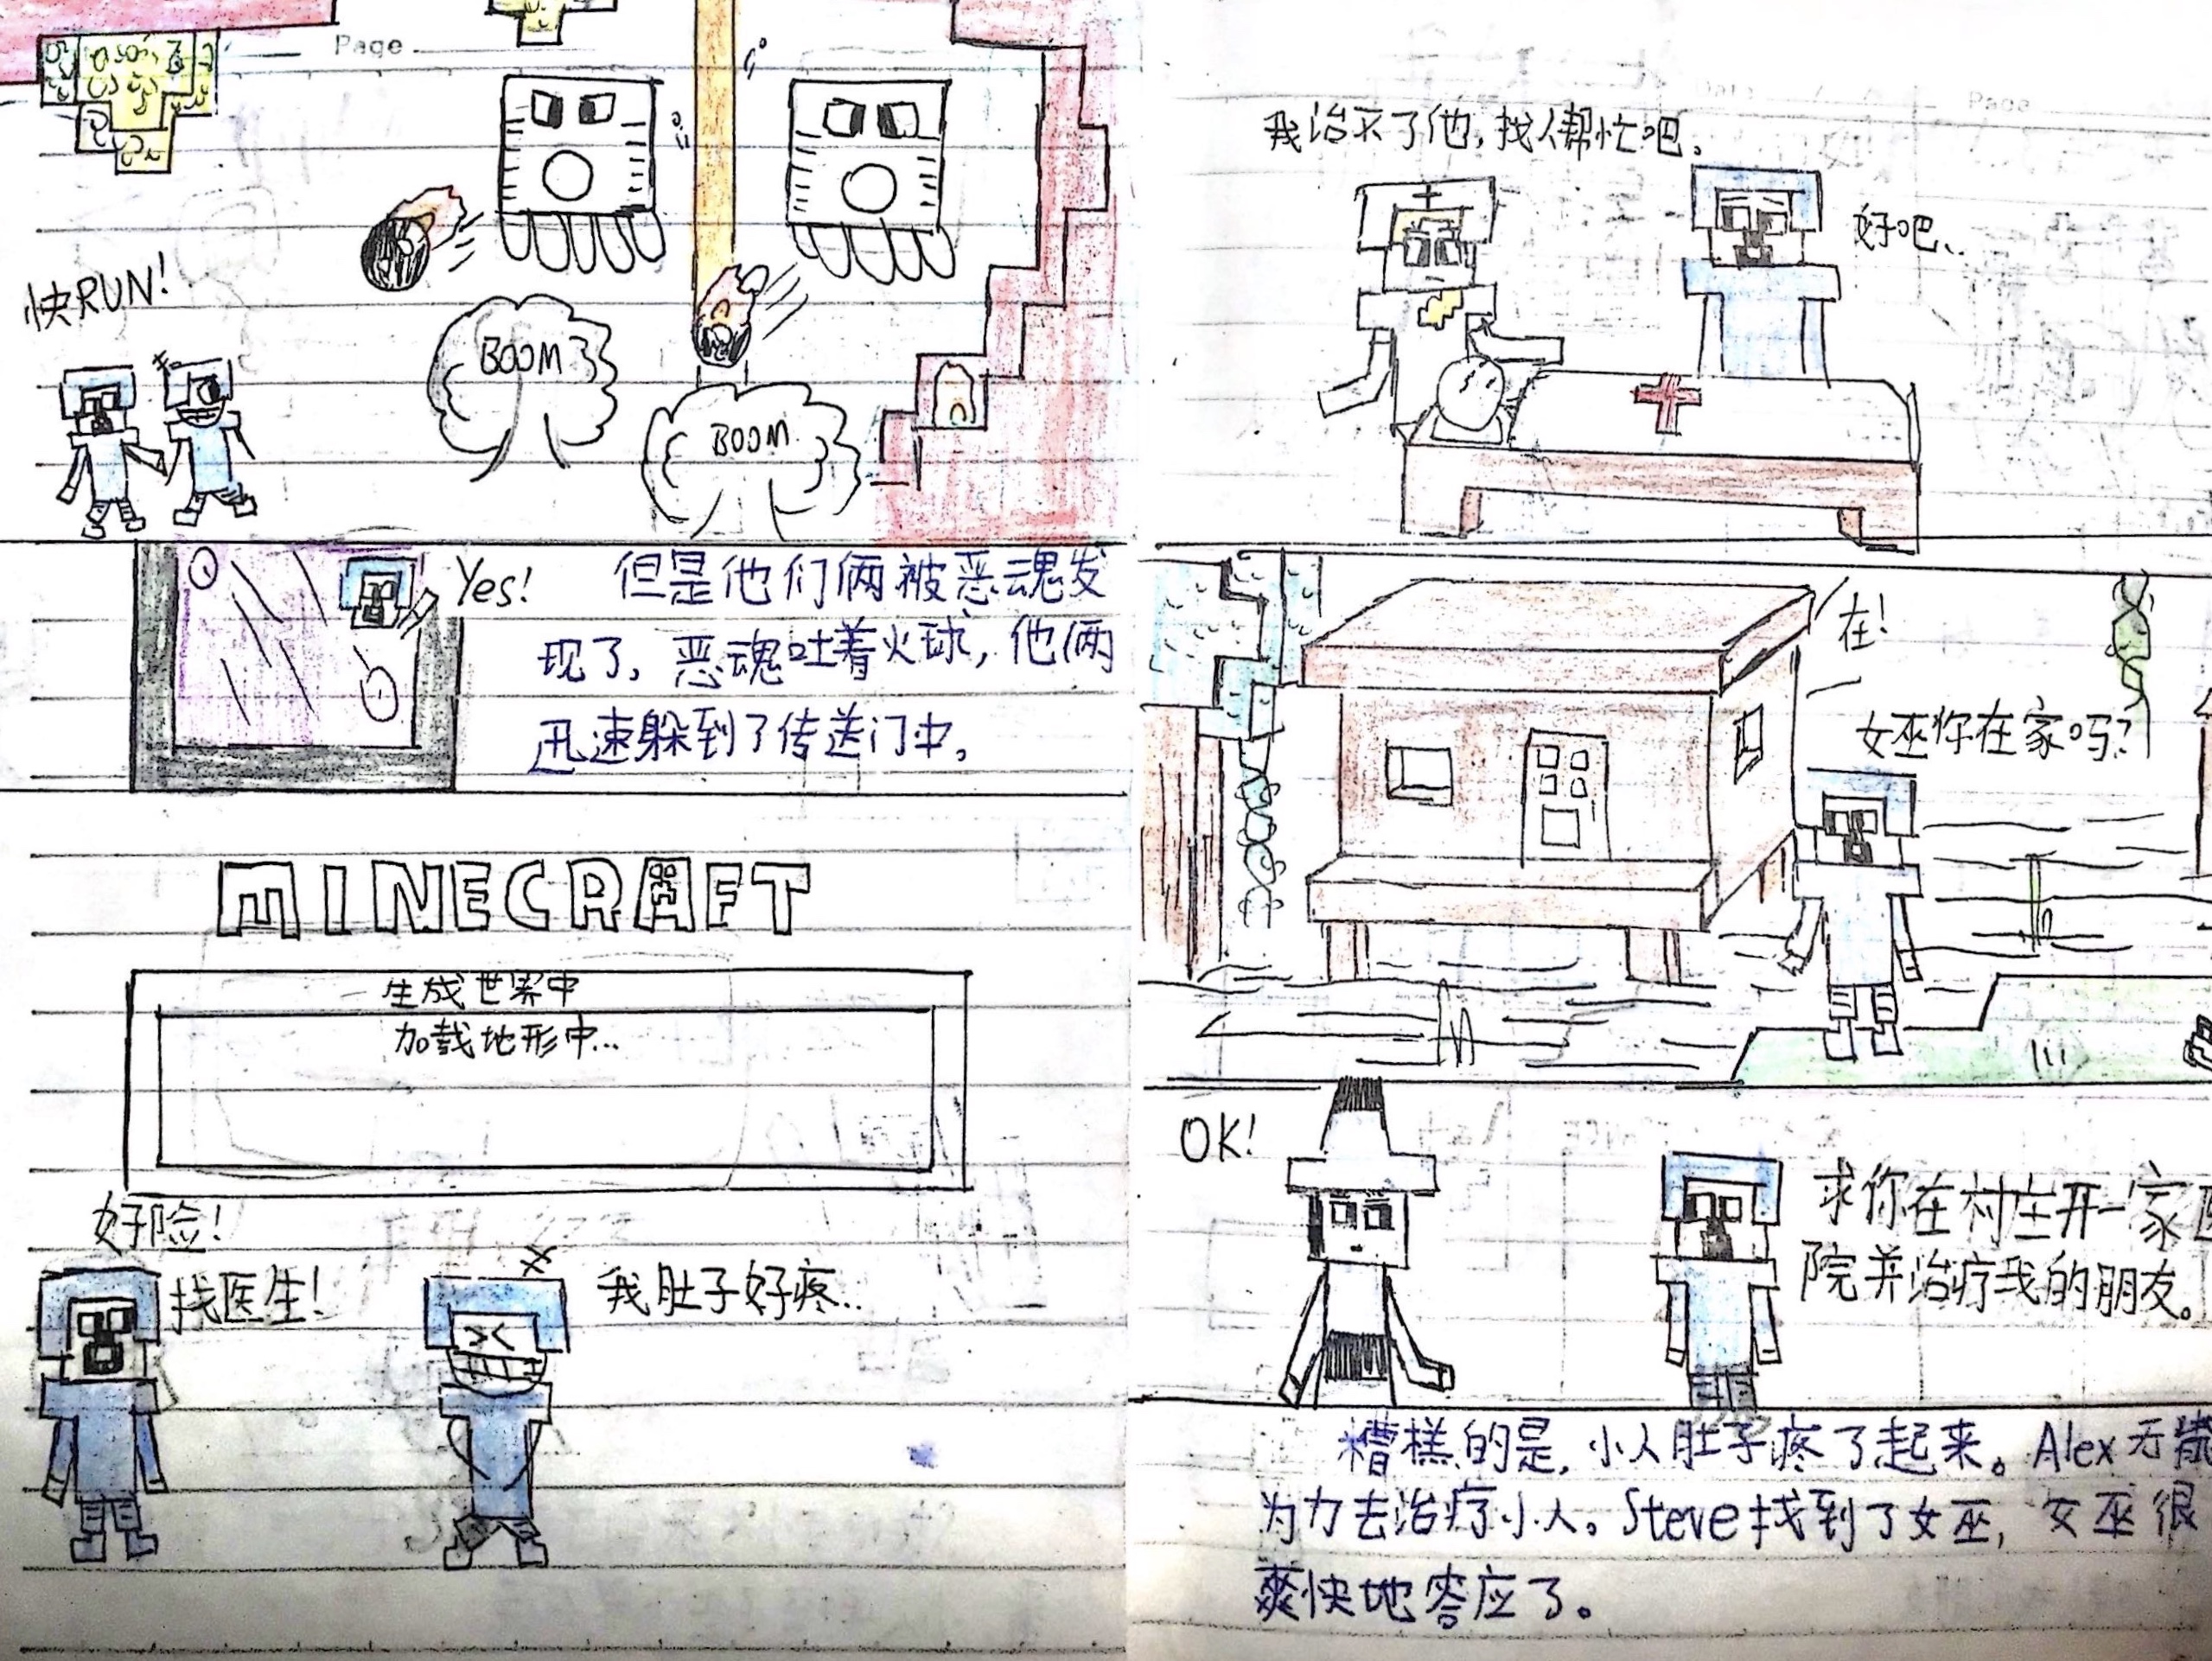 Page
快RUN!
BOOM
BOOM
Yes!
但是他们俩被恶魂发
现了，恶魂吐着火球，他俩
迅速躲到了传送门中。
MINECRAFT
生成世界中
加载地形中...
好险!
找医生!
我肚子好疼...
Page
我治不了他，找人帮忙吧。
好吧..
在!
女巫你在家吗?
OK!
求你在村庄开一家
院并治疗我的朋友。
糟糕的是，小人肚子疼了起来。Alex无能
为力去治疗小人。Steve找到了女巫，女巫很
爽快地答应了。